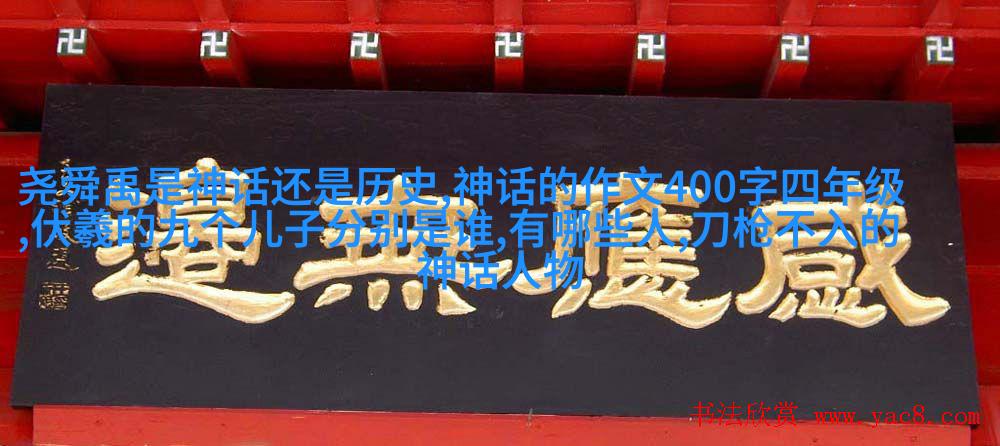 卍 卍 卍 卍 卍 卍 卍
尧舜禹是神话还是历史,神话的作文400字四年级
,伏羲的九个儿子分别是谁,有哪些人,刀枪不入的
神话人物
感應無邊
书法欣赏 www.yac8.com